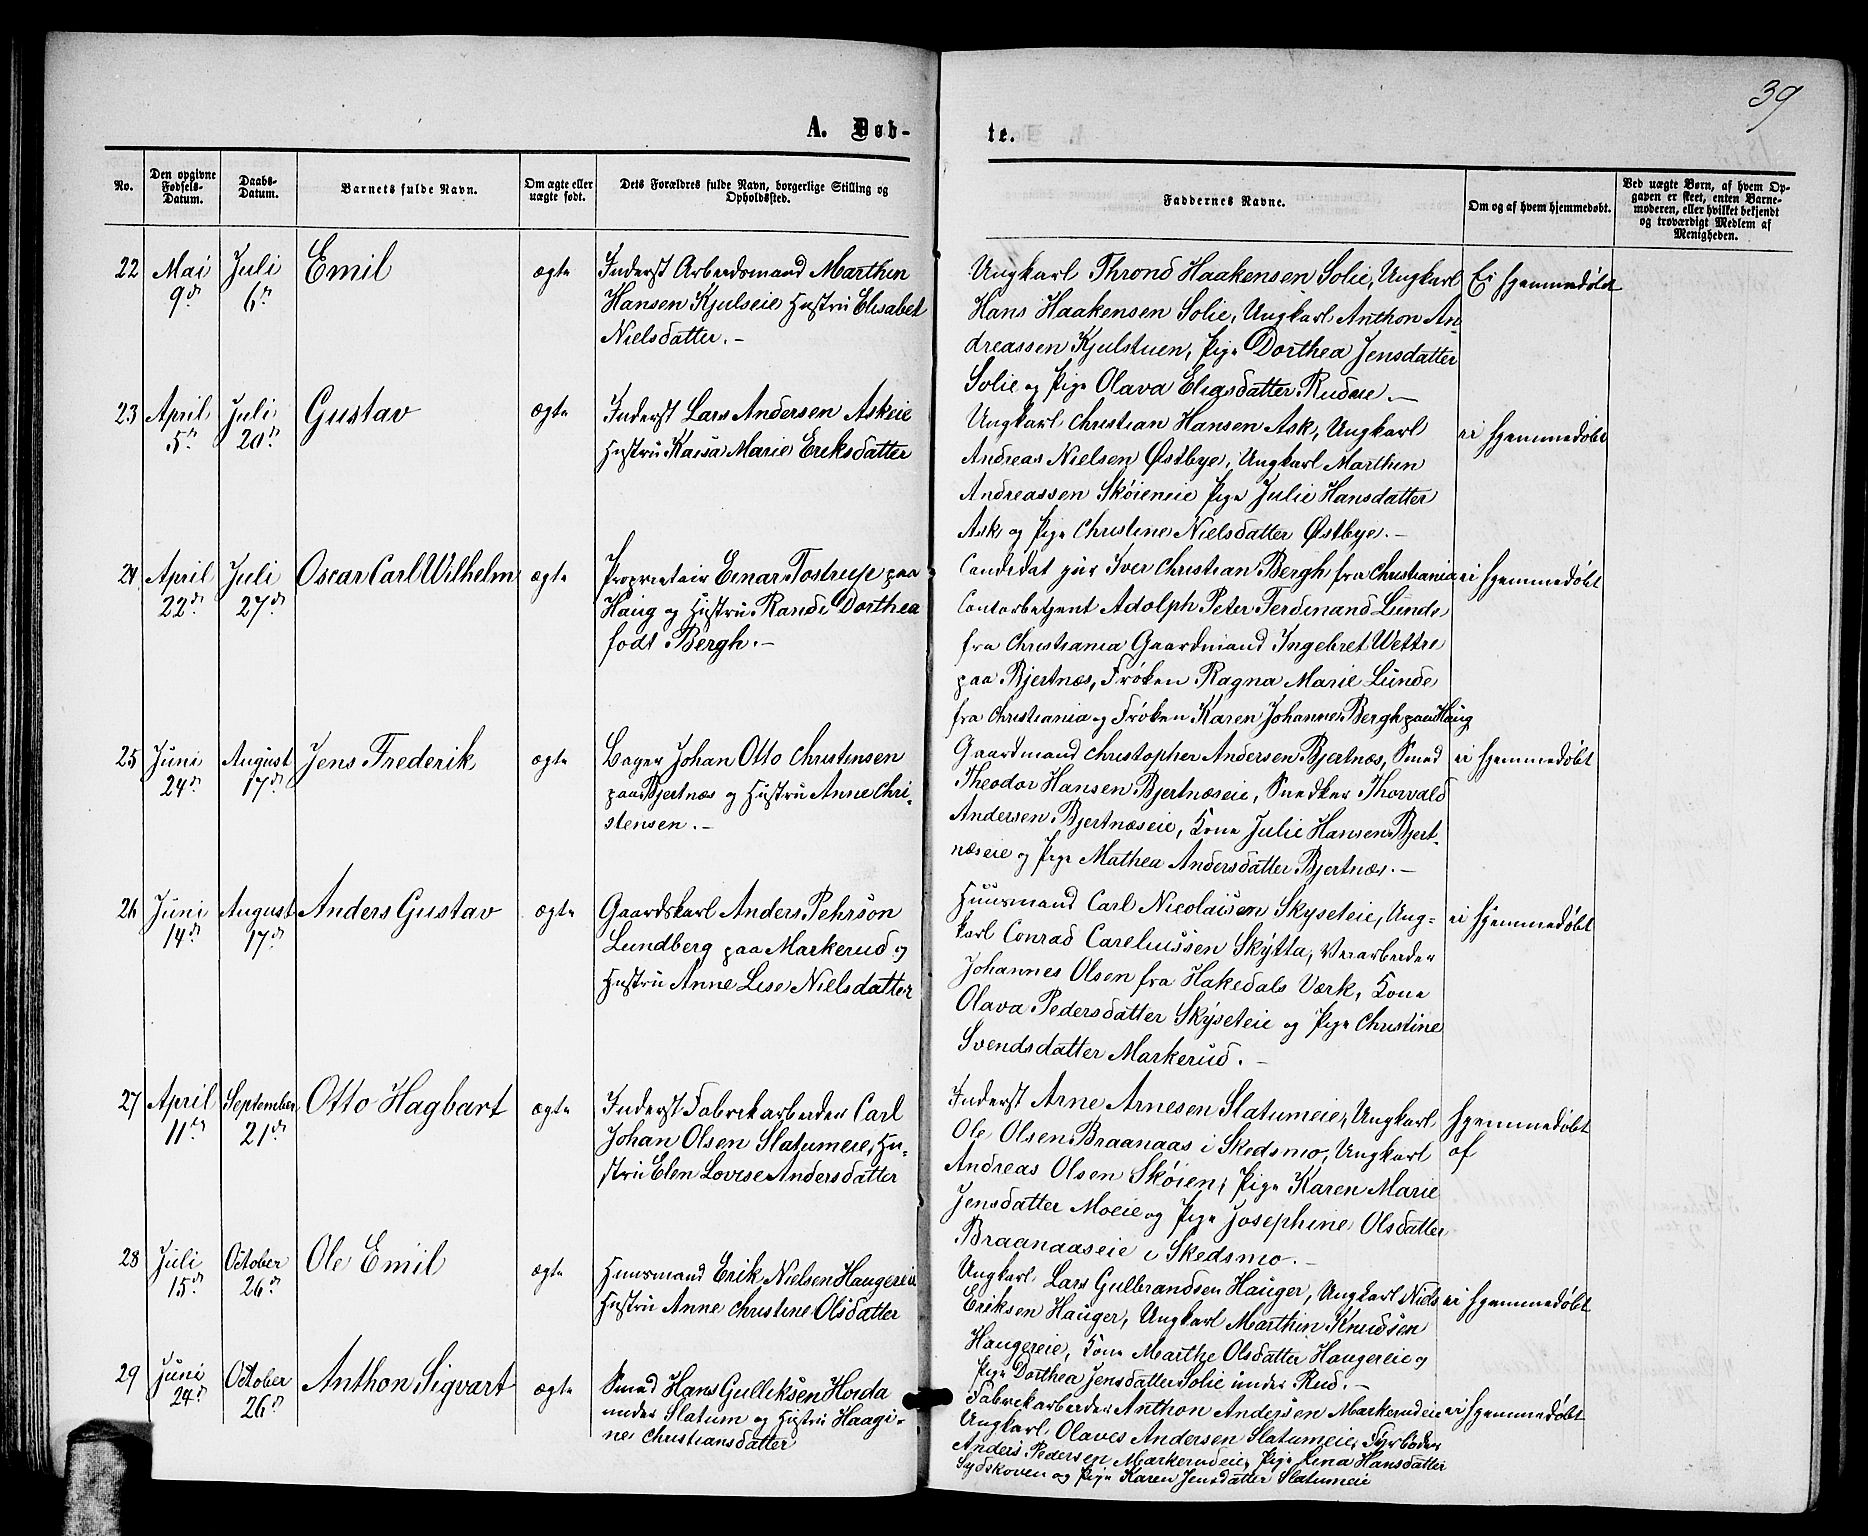 39
A. Døb-
te.
No.
Den opgivne Fødsels-Datum.
Daabs-Datum.
Barnets fulde Navn.
Om ægte eller uægte født.
Dets Forældres fulde Navn, borgerlige Stilling og Opholdssted.
Faddernes Navne.
Om og af hvem hjemmedøbt.
Ved uægte Børn, af hvem Opgaven er skeet, enten Barnemoderen, eller hvilket bekjendt og troværdigt Medlem af Menigheden.
22
Mai
9de
Juli
6te
Emil
ægte
Inderst Arbeidsmand Marthin
Hansen Kjulseie Hustru Elisabet
Nielsdatter. –
Ungkarl Thrond Haakensen Solie, Ungkarl
Hans Haakensen Solie, Ungkarl Anthon An-
dreassen Kjulstuen, Pige Dorthea Jensdatter
Solie og Pige Olava Eliasdatter Rudeie. –
Ei hjemmedøbt
23
April
5te
Juli
20de
Gustav
ægte
Inderst Lars Andersen Askeie
Hustru Kaisa Marie Eriksdatter
Ungkarl Christian Hansen Ask, Ungkarl
Andreas Nielsen Østbye, Ungkarl Marthin
Andreassen Skøieneie Pige Julie Hansdatter
Ask og Pige Christine Nielsdatter Østbye. –
ei hjemmedøbt
24
April
22de
Juli
27de
Oscar Carl Wilhelm
ægte
Proprietair Einar Tostrup paa
Haug og Hustru Rande Dorthea
født Bergh. –
Candidat jur Iver Christian Bergh fra Christiania
Contorbetjent Adolph Peter Ferdinand Lunde
fra Christiania Gaardmand Ingebret Wettre
paa Bjertnæs, Frøken Ragna Marie Lunde
fra Christiania og Frøken Karen Johanne Bergh paa Haug
ei hjemmedøbt
25
Juni
24de
August
17de
Jens Frederik
ægte
Bager Johan Otto Christensen
paa Bjertnæs og Hustru Anne Chri-
stensen. –
Gaardmand Christopher Andersen Bjertnæs, Smed
Theodor Hansen Bjertnæseie, Snedker Thorvald
Andersen Bjertnæseie, Kone Julie Hansen Bjert-
næseie og Pige Mathea Andersdatter Bjertnæs. –
ei hjemmedøbt
26
Juni
14de
August
17de
Anders Gustav
ægte
Gaardskarl Anders Pehrson
Lundberg paa Markerud og
Hustru Anne Lise Nielsdatter
Huusmand Carl Nicolaisen Skyseteie, Ung-
karl Conrad Careliussen Skytta,
Johannes Olsen fra Hakedals Værk, Kone
Olava Pedersdatter Skyseteie og Pige Christine
Svendsdatter Markerud. –
ei hjemmedøbt
27
April
11te
September
21de
Otto Hagbart
ægte
Inderst Fabrikarbeider Carl
Johan Olsen Slatumeie, Hu-
stru Elen Lovise Andersdatter
Inderst Arne Arnesen Slatumeie, Ungkarl
Ole Olsen Braanaas i Skedsmo, Ungkarl
Andreas Olsen Skøien, Pige Karen Marie
Jensdatter Moeie og Pige Josephine Olsdatter
Braanaaseie i Skedsmo. –
hjemmedøbt
af
28
Juli
15de
October
26de
Ole Emil
ægte
Huusmand Erik Nielsen Haugereie
Hustru Anne Christine Olsdatter
Ungkarl Lars Gulbrandsen Hauger, Ungkarl Niels
Eriksen Hauger, Ungkarl Marthin Knudsen
Haugereie, Kone Marthe Olsdatter Haugereie og
Pige Dorthea Jensdatter Solie under Rud. –
ei hjemmedøbt
29
Juni
24de
October
26de
Anthon Sigvart
ægte
Smed Hans Gulliksen Horda
under Slatum og Hustru Haagi-
ne Christiansdatter
Fabrikarbeider Anthon Andersen Markerudeie
Ungkarl Olaves Andersen Slatumeie, Fyrbøder
Anders Pedersen Markerudeie, Pige Lina Hansdatter
Sydskoven og Pige Karen Jensdatter Slatumeie
ei hjemmedøbt